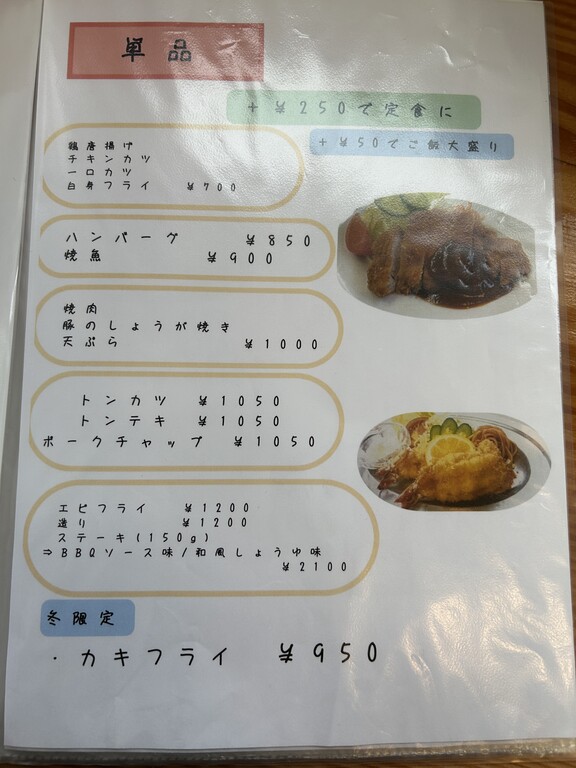 単品
+¥250で定食に
+¥50でご飯大盛り
鶏唐揚げ
チキンカツ
一口カツ
白身フライ ¥700
ハンバーグ ¥850
焼魚 ¥900
焼肉
豚のしょうが焼き
天ぷら ¥1000
トンカツ ¥1050
トンテキ ¥1050
ポークチャップ ¥1050
エビフライ ¥1200
造り ¥1200
ステーキ(150g)
⇒BBQソース味/和風しょうゆ味
¥2100
冬限定
・カキフライ ¥950